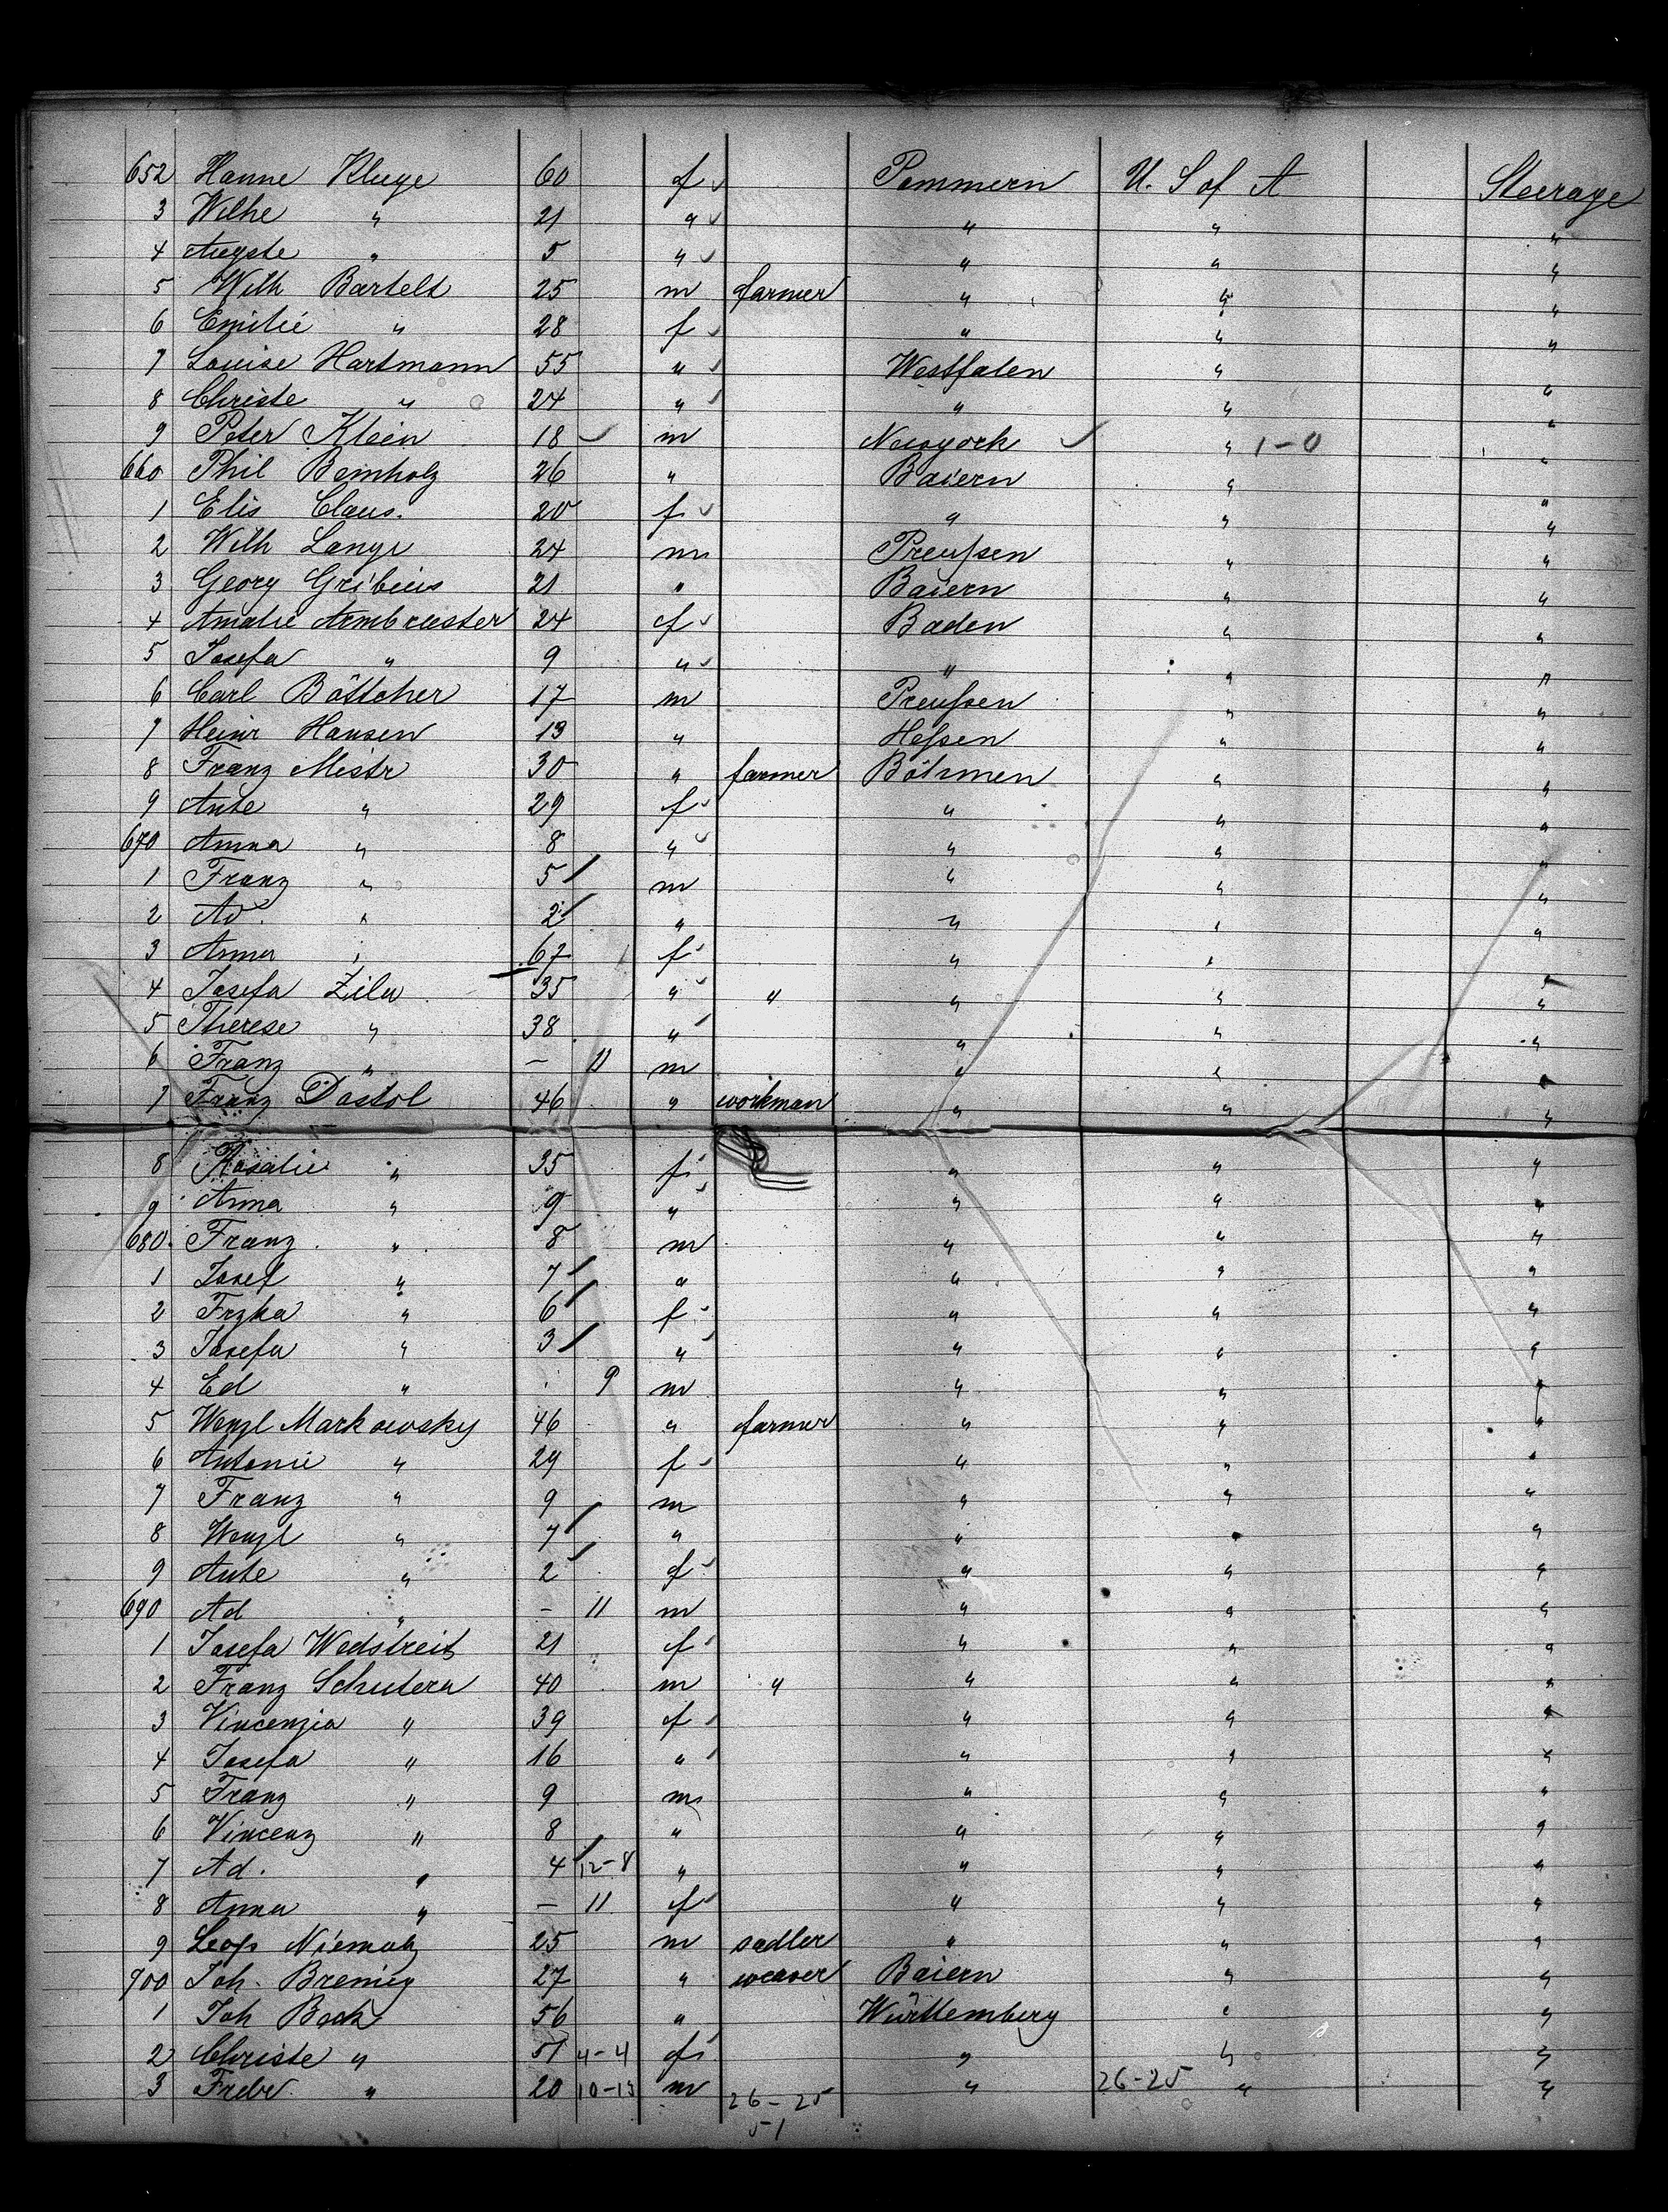 652 Hanne Kluge 60 f Pommern U. S of A Steerage
3 Wilhe " 21 " " " "
4 Augste " 5 " " " "
5 Wilh Bartelt 25 m farmer " " "
6 Emilie " 28 f " " "
7 Louise Hartmann 55 " Westfalen " "
8 Christe " 24 " " " "
9 Peter Klein 18 m Newyork " 1-0 "
660 Phil Bernholz 26 " Baiern " "
1 Elis Claus. 20 f " " "
2 Wilh Lange 24 m Preußen " "
3 Georg Gribius 21 " Baiern " "
4 Amalie Armbruster 24 f Baden " "
5 Josefa " 9 " " " "
6 Carl Böttcher 17 m Preußen " "
7 Heinr Hansen 19 " Heßen " "
8 Franz Mistr 30 " farmer Böhmen " "
9 Ante " 29 f " " "
670 Anna " 8 " " " "
1 Franz " 5 m " " "
2 Ad. " 2 " " " "
3 Anna " 67 f " " "
4 Josefa Zila 35 " " " " "
5 Therese " 38 " " " "
6 Franz " - 11 m " " "
7 Franz Dostol 46 " workman " " "
8 Rosalie " 35 f " " "
9 Anna " 9 " " " "
680 Franz " 8 m " " "
1 Josef " 7 " " " "
2 Frzka " 6 f " " "
3 Josefa " 3 " " " "
4 Ed " 9 m " " "
5 Wenzl Markowsky 46 " farmer " " "
6 Antonie " 29 f " " "
7 Franz " 9 m " " "
8 Wenzl " 7 " " " "
9 Ante " 2 f " " "
690 Ad " - 11 m " " "
1 Josefa Wodstreit 21 f " " "
2 Franz Schutera 40 m " " " "
3 Vincenzia " 39 f " " "
4 Josefa " 16 " " " "
5 Franz " 9 m " " "
6 Vincenz " 8 " " " "
7 Ad. " 4 12-8 " " " "
8 Anna " - 11 f " " "
9 Leop Niematz 25 m sadler " " "
700 Joh. Brenieg 27 " weaver Baiern " "
1 Joh Bock 56 " Württemberg " "
2 Christe " 51 4-4 f " " "
3 Fredr " 20 10-13 m " 26-25 " "
26-25
51